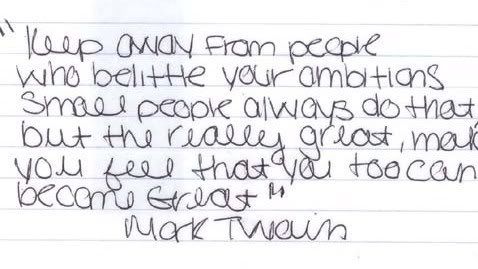 "Keep away from people
who belittle your ambitions
Small people always do that,
but the really great, mak
you feel that you too can
become Great"
Mark Twain